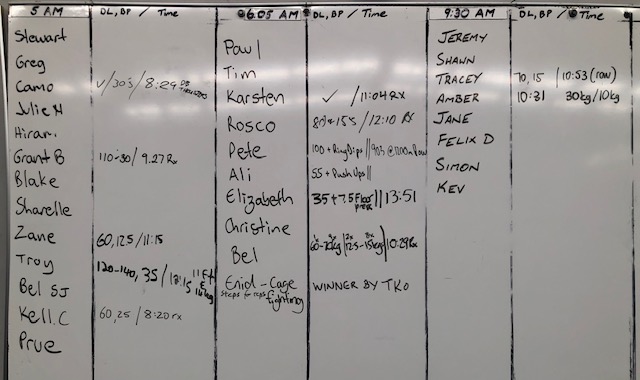 5 AM DL, BP / Time
Stewart
Greg
Camo √/30's/8:29
Julie H
Hiram
Grant B 110-30/ 9.27 Rx
Blake
Sharelle
Zane 60,12.5/11:15
Troy 120-140, 35/
Bel SJ
Kell.C 60,25/8:20 rx
Prue
6.05 AM DL, BP / Time
Paul
Tim
Karsten ✓ /11:04 Rx
Rosco /12:10 Rx
Pete 100 + Ring Dips
Ali 55 + Push Ups
Elizabeth 35 + 7.5 Floor press || 13:51
Christine
Bel 10:29 Rx
Enid - Cage fighting WINNER BY TKO
steps for reps
9:30 AM DL, BP / Time
JEREMY
SHAWN
TRACEY 70, 15 / 10:53 (row)
AMBER 10:31 30kg/10kg
JANE
FELIX D
SIMON
KEV